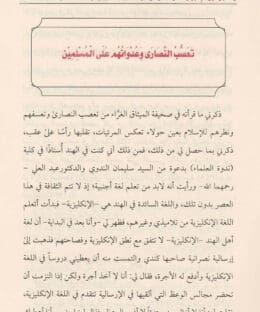 تعصُّب النصارى وعُدوانُهم على المُسلمين
ذكرني ما قرأته في صحيفة الميثاق الغرَّاء من تعصب النصارى وتعسفهم
ونظرهم للإسلام بعين حولاء تعكس المرئيات، تقلبها رأسًا علىٰ عقب،
ذكرني بما حصل لي من ذلك، فمن ذلك أني كنت في الهند أستاذًا في كلية
(ندوة العلماء) بدعوة من السيد سليمان الندوي والدكتور عبد العلي -
رحمهما الله- ورأيت أنه لابد من تعلم لغة أجنبية؛ إذ لا تتم الثقافة في هذا
العصر بدون تلك، واللغة السائدة في الهند هي الإنكليزية- فبدأت أتعلم
اللغة الإنكليزية من تلاميذي وغيرهم، فظهر لي -وأنا بعد في البداية- أن لغة
أهل الهند -الإنكليزية- لا تتفق مع نطق الإنكليزية وفصاحتهم فذهبت إلىٰ
إرسالية نصرانية صاحبها كندي والتمست منه أن يعطيني دروسًا في اللغة
الإنكليزية وأدفع له الأجرة، فقال لي: أنا لا آخذ أجرة ولكن إذا التزمت أن
تحضر مجالس الوعظ التي ألقيها في الإرسالية تتقدم في اللغة الإنكليزية،